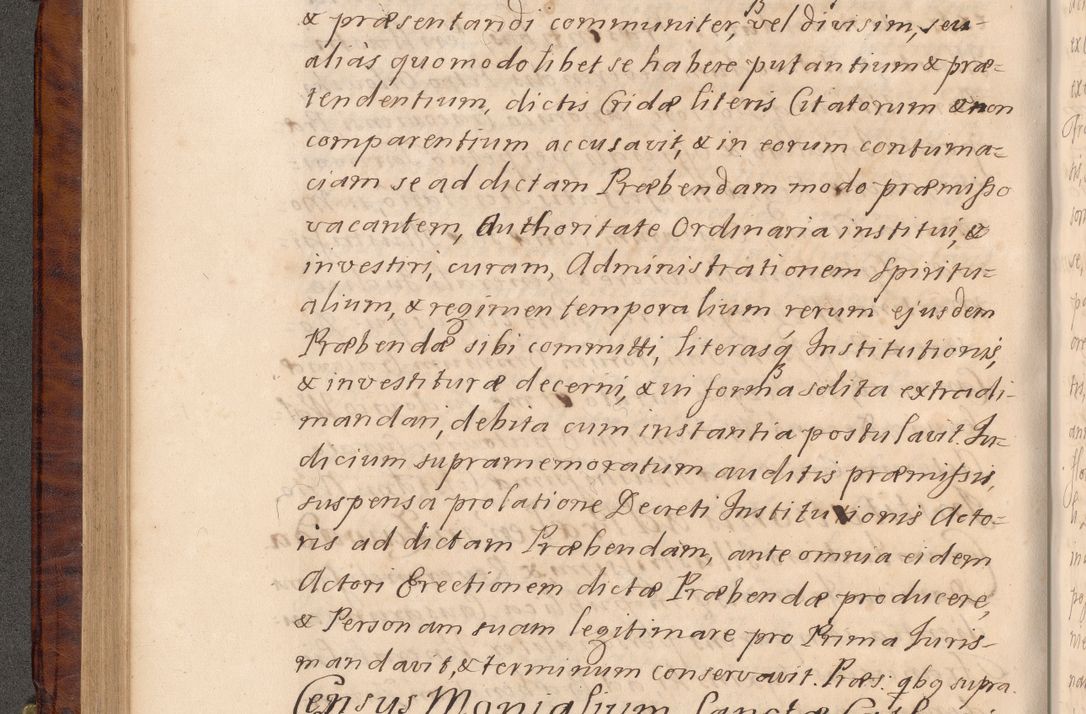 & præsentandi communiter, vel divisim, seu-
aliàs quomodolibet se habere putantium & præ=
tendentium, dictis Cridæ literis Citatorum & non
comparentium accusavit, & in eorum contuma=
ciam se ad dictam Præbendam modo præmisso
vacantem, Authoritate Ordinaria institui, &
investiri, curam, Administrationem spiritu=
alium, & regimen temporalium rerum ejusdem
Præbendæ sibi committi, literasq́ Institutionis,
& investituræ decerni, & in forma solita extradi-
mandari, debita cum instantia postulavit. Iu=
dicium supramemoratum auditis præmissis,
suspensa prolatione Decreti Institutionis Acto=
ris ad dictam Præbendam, ante omnia eidem
Actori Erectionem dictæ Præbendæ producere,
& Personam suam legitimare pro Prima Iuris-
mandavit, & terminum conservavit. Præs: qbq supra.
Census Monialium Sanctæ